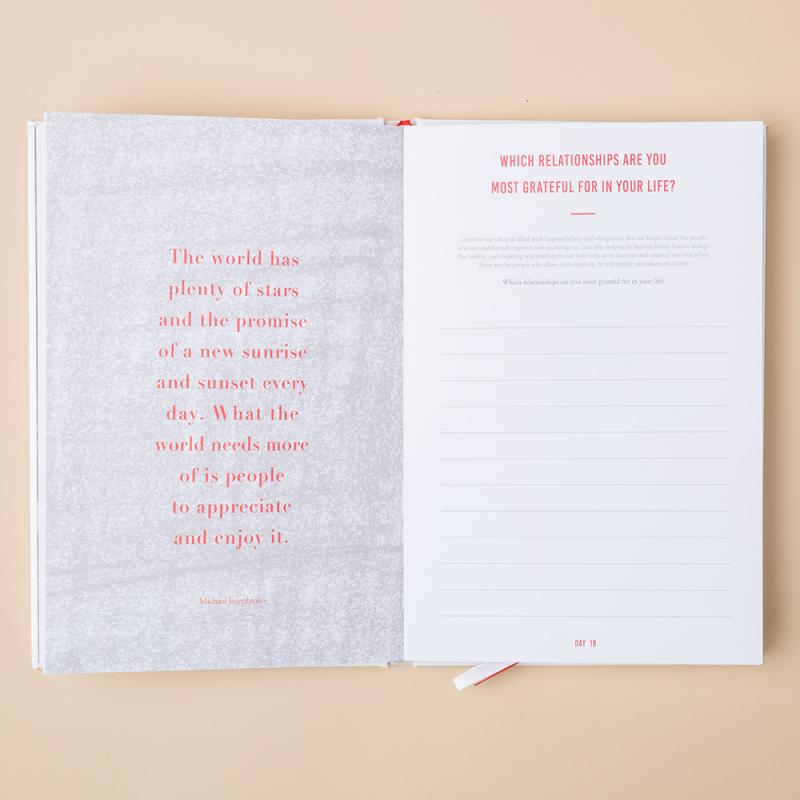 The world has
plenty of stars
and the promise
of a new sunrise
and sunset every
day. What the
world needs more
of is people
to appreciate
and enjoy it.
Michael Josephson -
WHICH RELATIONSHIPS ARE YOU
MOST GRATEFUL FOR IN YOUR LIFE?
Our lives are often so filled with responsibilities and obligations that we forget about the people
who unconditionally support and encourage us, and who help us to become better human beings.
For healthy and inspiring relationships in our lives help us to discover and uncover our true selves.
These are the people who allow us to open up, be vulnerable, and share our hearts.
Which relationships are you most grateful for in your life?
DAY 18